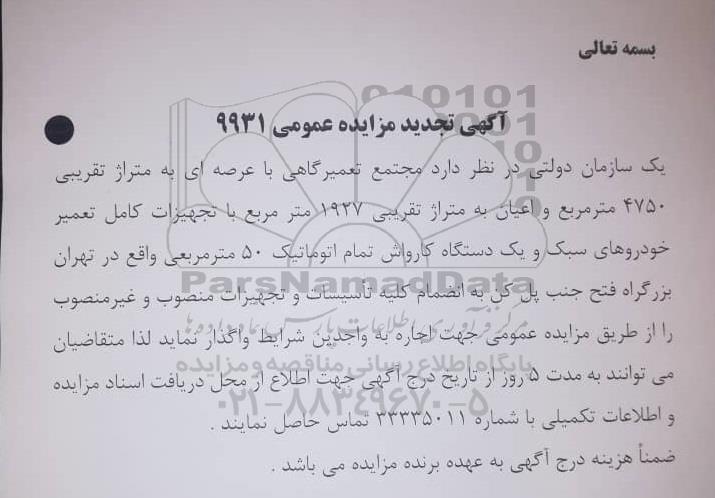 بسمه تعالی
آگهی تجدید مزایده عمومی ۹۹۳۱
یک سازمان دولتی در نظر دارد مجتمع تعمیرگاهی با عرصه ای به متراژ تقریبی
۴۷۵۰ مترمربع و اعیان به متراژ تقریبی ۱۹۲۷ متر مربع با تجهیزات کامل تعمیر
خودروهای سبک و یک دستگاه کارواش تمام اتوماتیک ۵۰ مترمربعی واقع در تهران
ParsNamadData
بزرگراه فتح جنب پل کن به انضمام کلیه تأسیسات و تجهیزات منصوب و غیرمنصوب
مرکز فرآوری اطلاعات پارس نماد داده ها
را از طریق مزایده عمومی جهت اجاره به واجدین شرایط واگذار نماید لذا متقاضیان
پایگاه اطلاع رسانی مناقصه و مزایده
می توانند به مدت ۵ روز از تاریخ درج آگهی جهت اطلاع از محل دریافت اسناد مزایده
۰۲۱-۸۸۳۴۹۶۷۰-۵
و اطلاعات تکمیلی با شماره ۳۳۳۳۵۰۱۱ تماس حاصل نمایند .
ضمناً هزینه درج آگهی به عهده برنده مزایده می باشد .